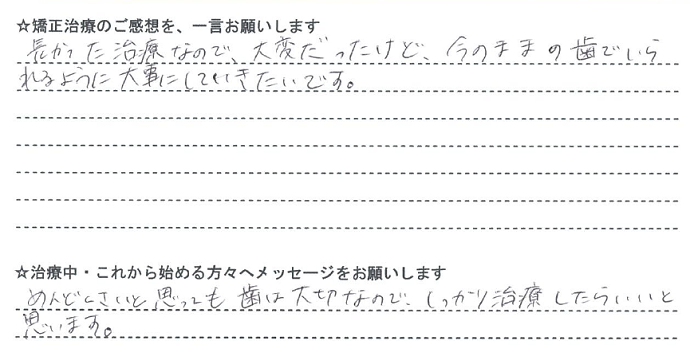 ☆矯正治療のご感想を、一言お願いします
長かった治療なので、大変だったけど、今のままの歯でいら
れるように大事にしていきたいです。
☆治療中・これから始める方々へメッセージをお願いします
めんどくさいと思っても歯は大切なので、しっかり治療したらいいと
思います。